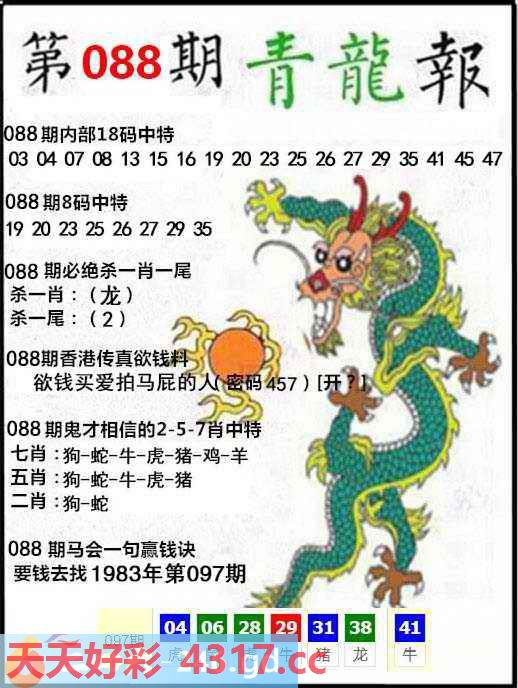 第088期 青龍報
088期内部18码中特
03 04 07 08 13 15 16 19 20 23 25 26 27 29 35 41 45 47
088期8码中特
19 20 23 25 26 27 29 35
088期必绝杀一肖一尾
杀一肖：（龙）
杀一尾：（2）
088期香港传真欲钱料
欲钱买爱拍马屁的人（密码457）[开？]
088期鬼才相信的2-5-7肖中特
七肖：狗-蛇-牛-虎-猪-鸡-羊
五肖：狗-蛇-牛-虎-猪
二肖：狗-蛇
088期马会一句赢钱诀
要钱去找1983年第097期
04 06 28 29 31 38 41
097期 虎 牛 猪 龙 牛
天天好彩 4317.cc